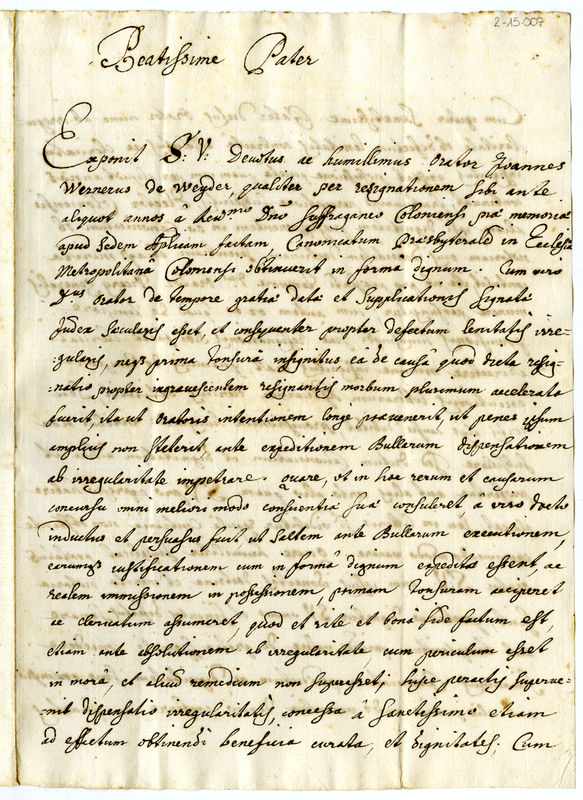 2-15-007
Beatissime Pater
Exponit S: V: Devotus ac humillimus orator Joannes
Wernerus de Weyder, qualiter per resignationem sibi ante
aliquot annos â Revmo Dno Suffraganeo Coloniensi piæ memoriæ
apud Sedem Aplicam factam, Canonicatum Præsbyteralē in Ecclesia
Metropolitanâ Coloniensi obtinuerit in formâ dignum. Cum vero
orator de tempore gratiæ datæ et Supplicationis Signatæ
Judex Sæcularis esset, et consequenter propter defectum lenitatis irre-
:gularis, neqȝ prima tonsura insignitus, eâ de causâ quod dicta resig-
:natio propter ingravescentem resignantis morbum plurimum accelerata
fuerit, ita ut oratoris intentionem longe prævenerit, ut penes ipsum
amplius non steterit, ante expeditionem Bullarum dispensationem
ab irregularitate impetrare. quare, et in hoc rerum et causarum
concursu omni meliori modo conscientiæ suæ consuleret, â viro docto
inductus et persuasus fuit ut saltem ante Bullarum executionem,
earumqȝ iustificationem cum in formâ dignum expeditæ essent, ac
realem immissionem in possessionem, primam tonsuram acciperet
ac clericatum assumeret, quod et rité et bonâ fide factum est,
etiam ante absolutionem ab irregularitate, cum periculum esset
in morâ, et aliud remedium non superesset; hisce peractis superve-
:nit dispensatio irregularitatis, concessa â Sanctissimo etiam
ad effectum obtinendi beneficia curata, et dignitates. Cum